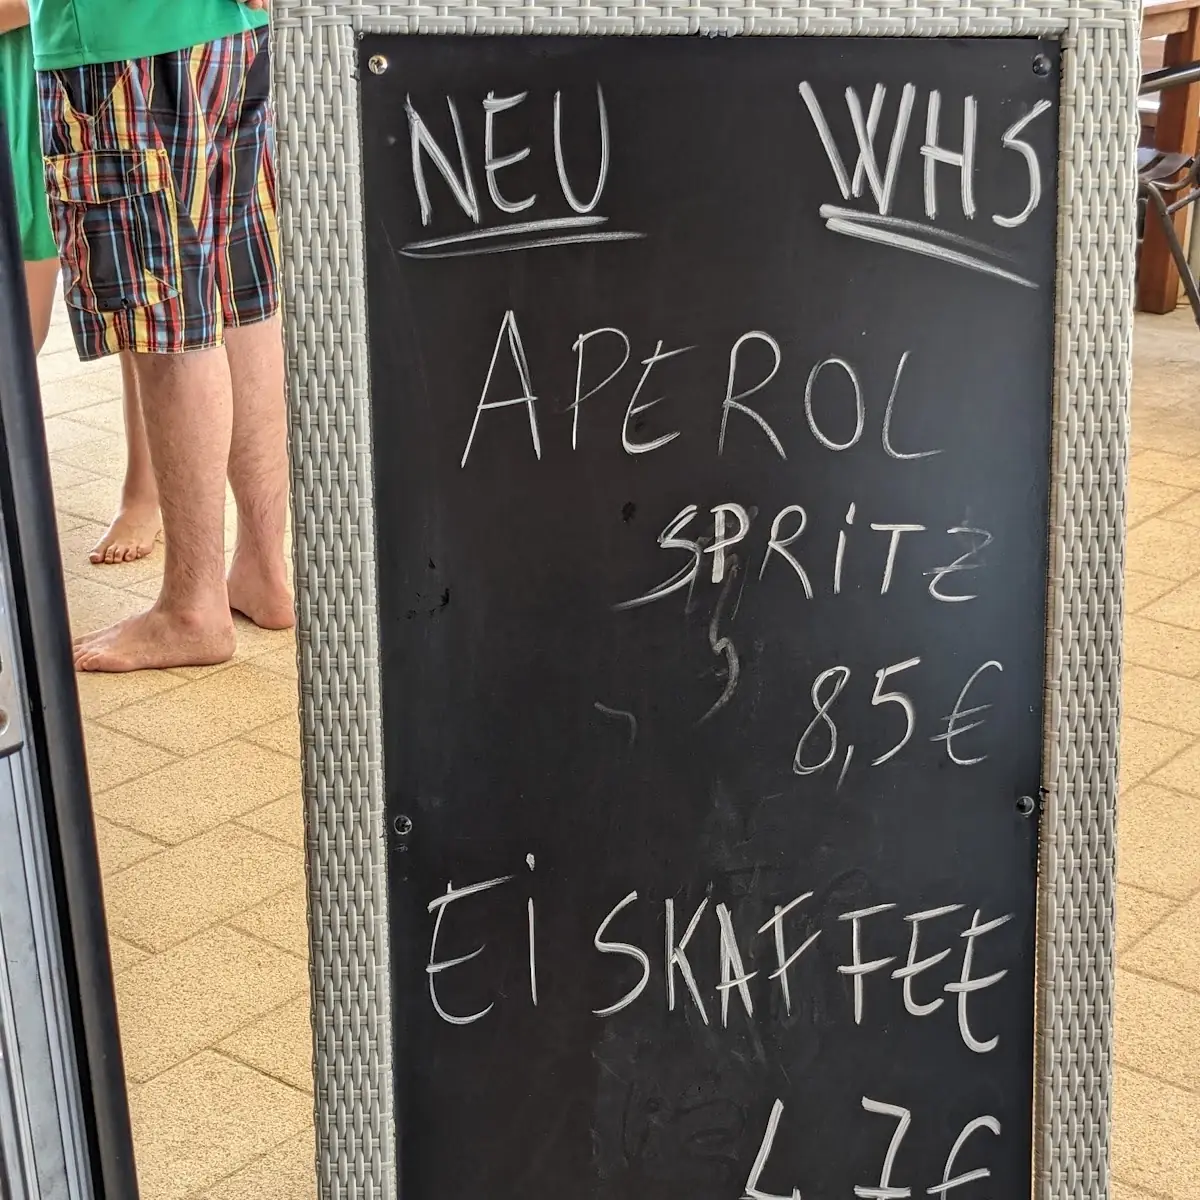 NEU WHS
APEROL
SPRiTZ
8,5 €
EiSKAFFEE
4,7€